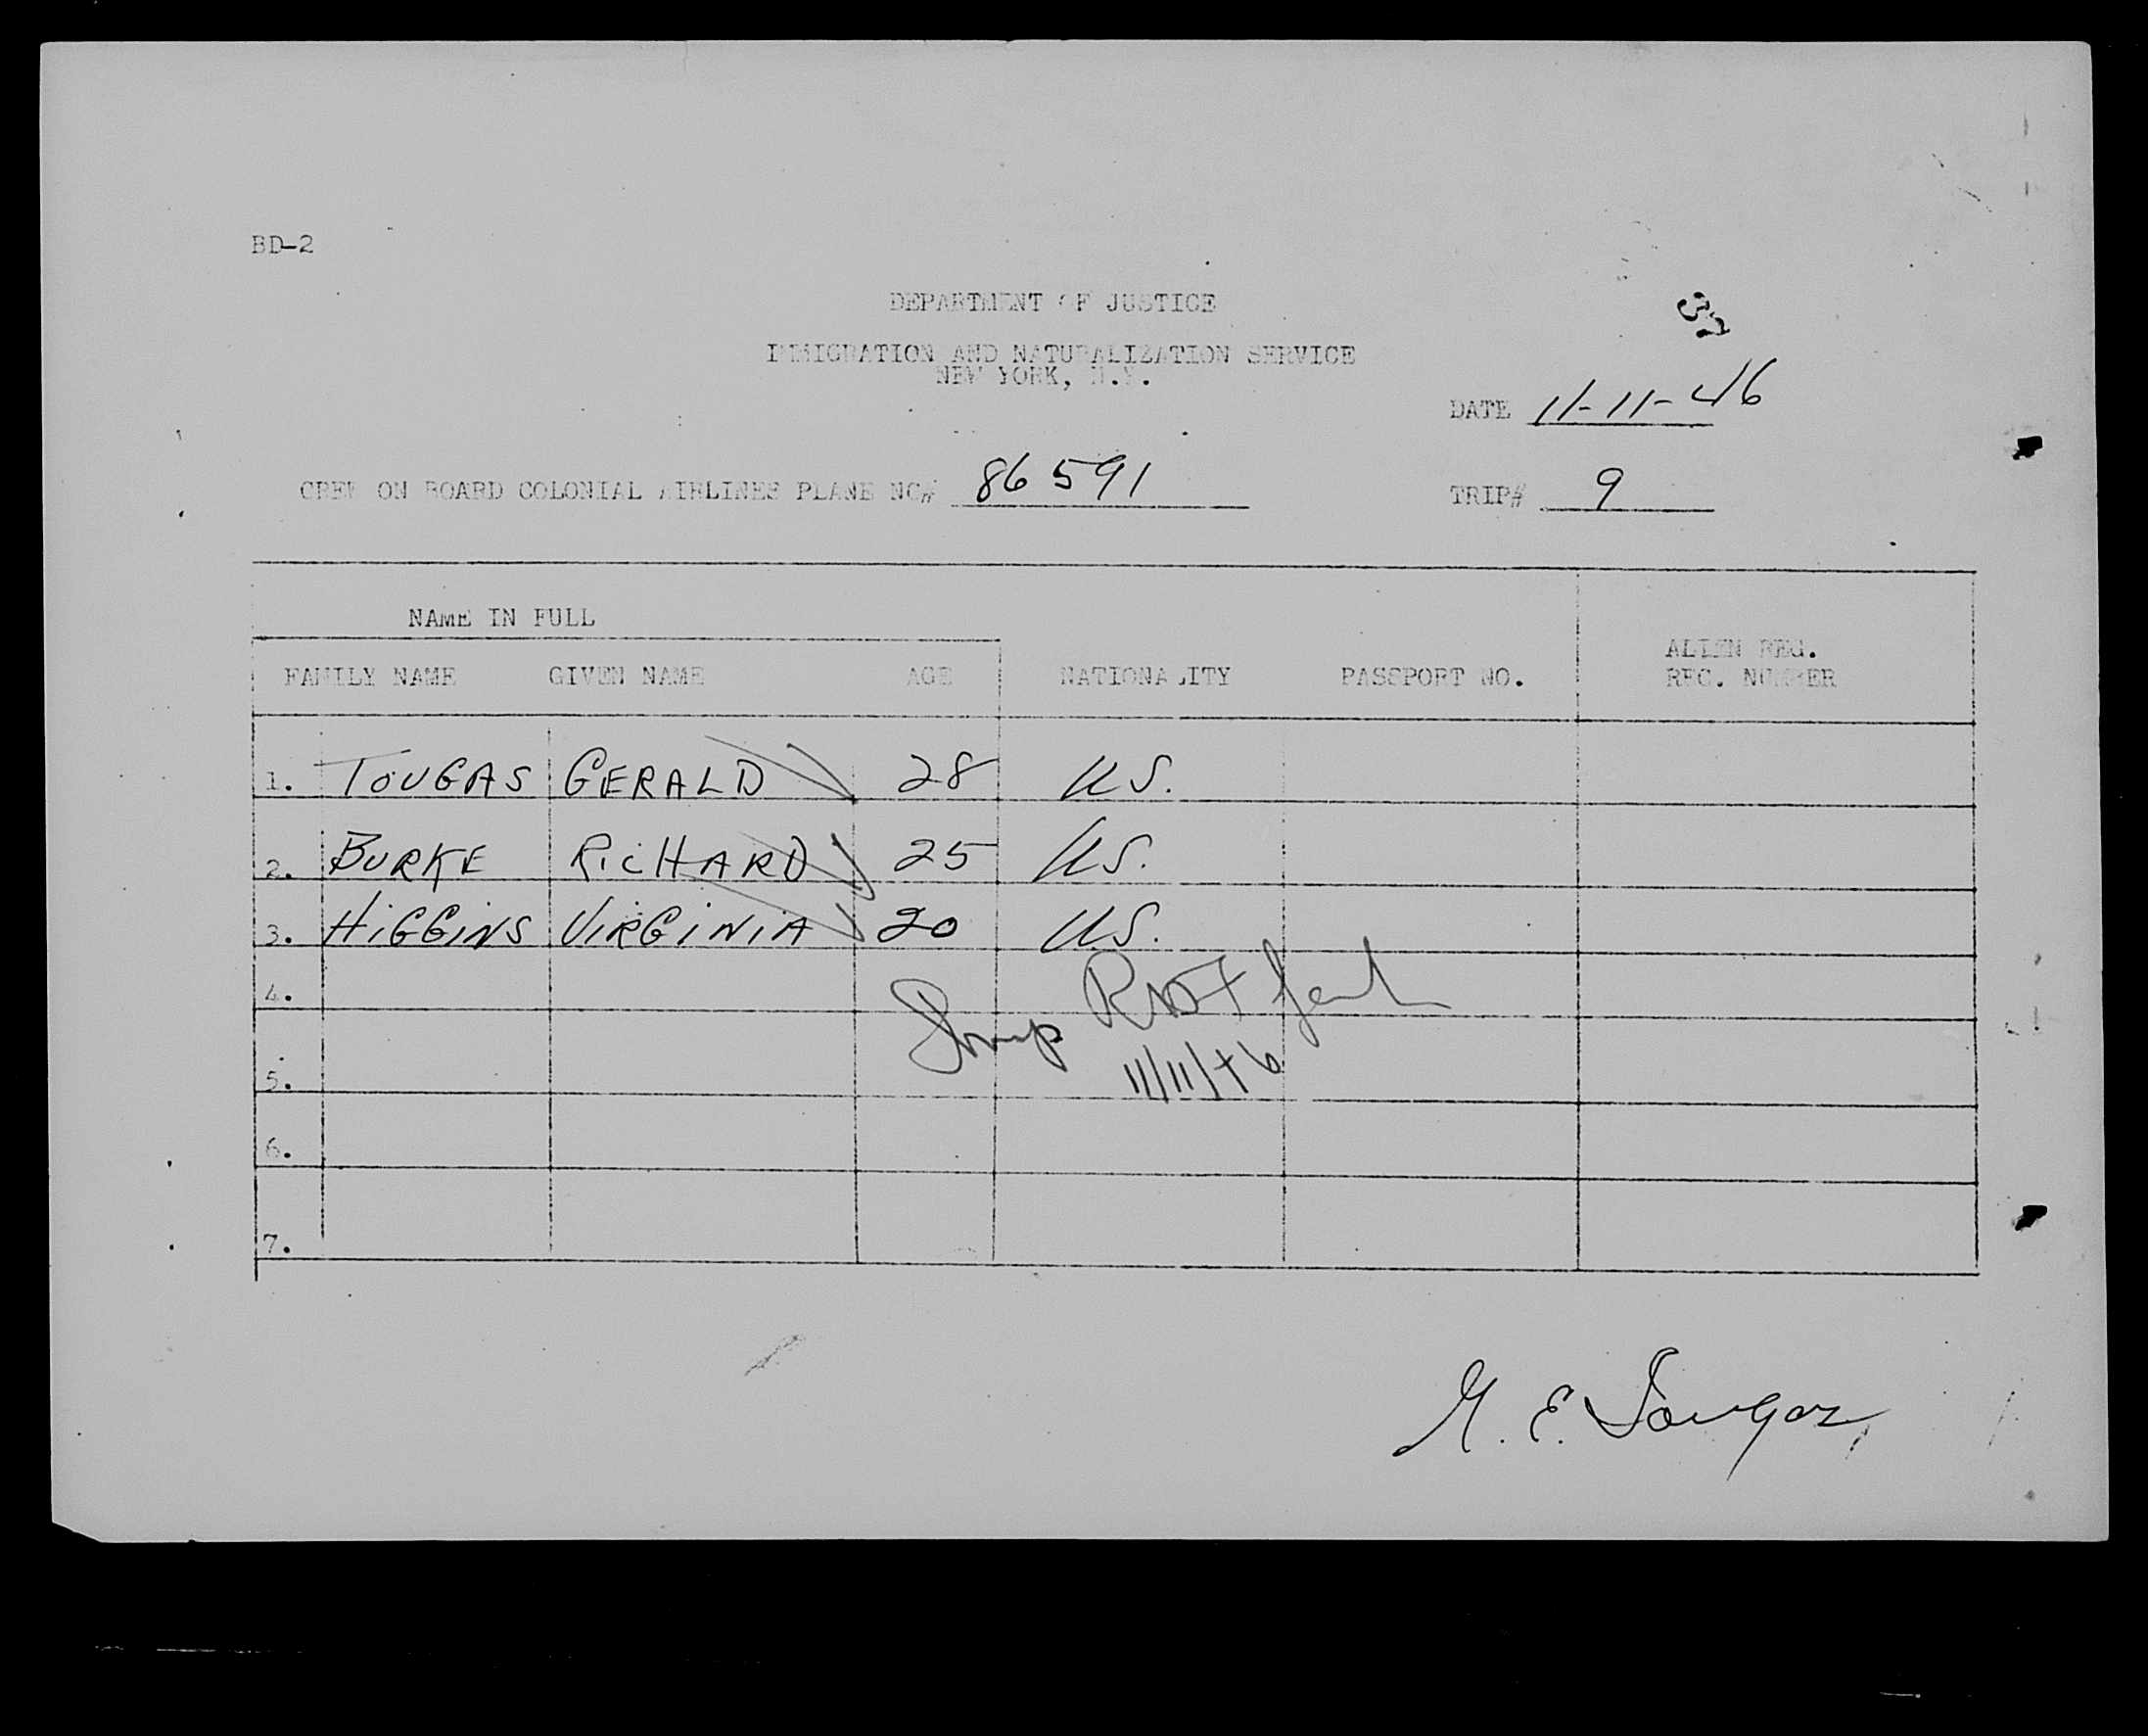 BD-2
DEPARTMENT OF JUSTICE
37
IMMIGRATION AND NATURALIZATION SERVICE
NEW YORK, N.Y.
DATE 11-11-46
CREW ON BOARD COLONIAL AIRLINES PLANE NC# 86591 TRIP# 9
NAME IN FULL
FAMILY NAME GIVEN NAME AGE NATIONALITY PASSPORT NO. ALIEN REG.
REC. NUMBER
1. TOUGAS GERALD 28 U.S.
2. BURKE RICHARD 25 U.S.
3. HIGGINS VIRGINIA 20 U.S.
4.
11/11/46
5.
6.
7.
G. E. Tougas